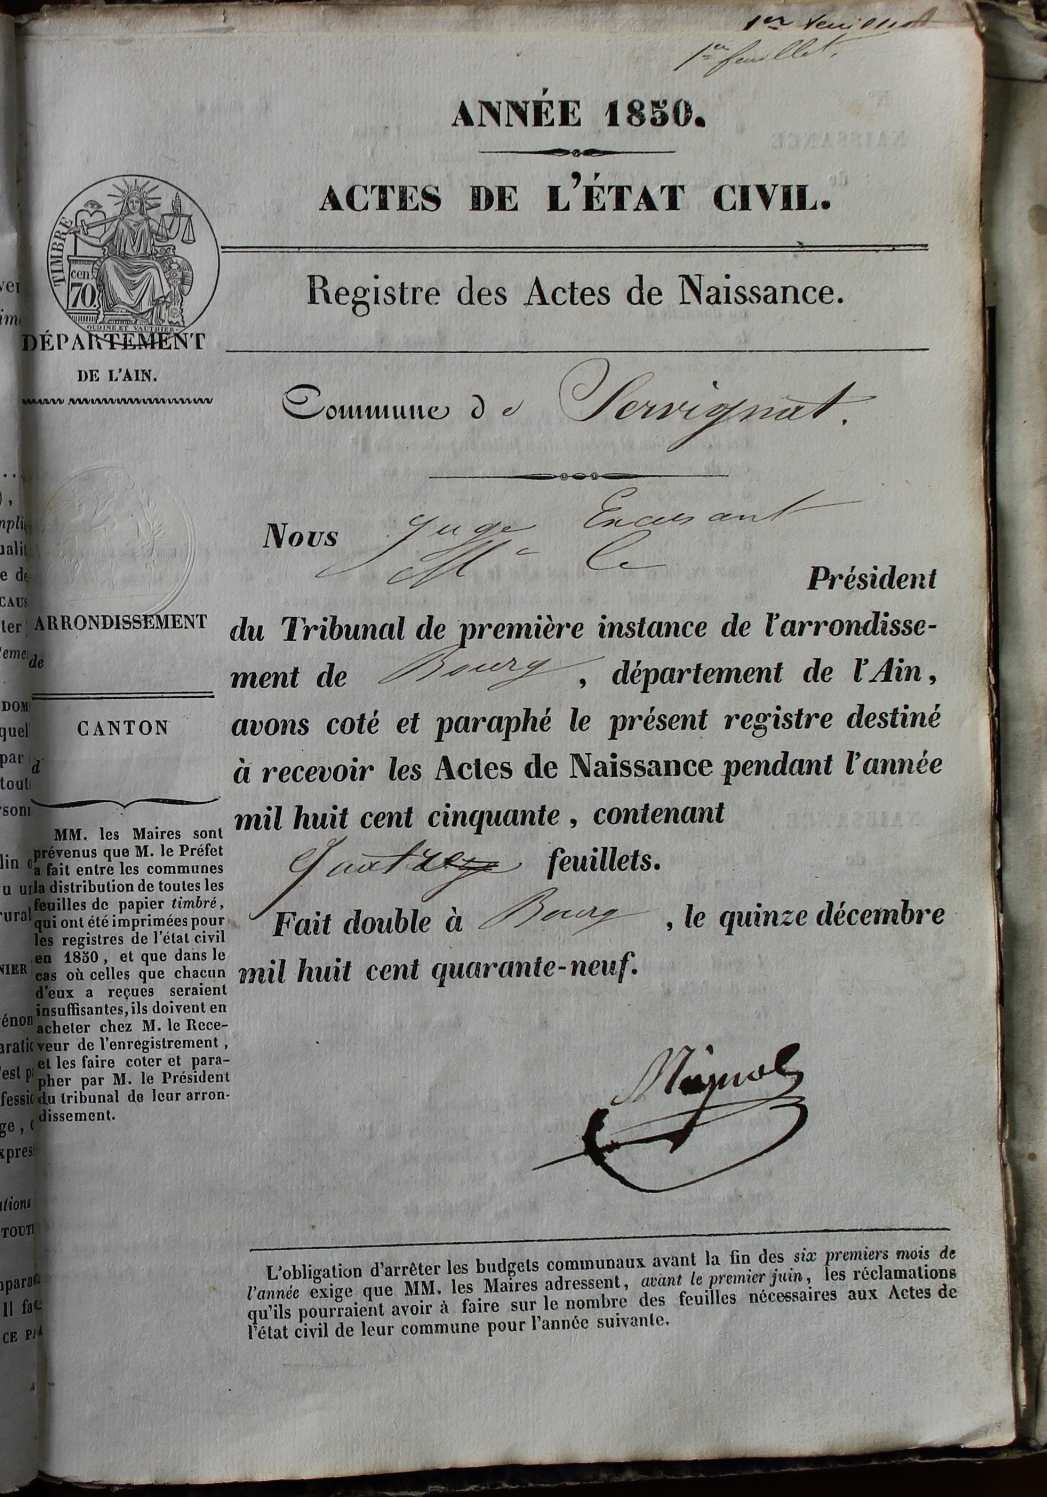 1er feuillet
1er feuillet.
ANNÉE 1850.
ACTES DE L'ÉTAT CIVIL.
TIMBRE
cen
70.
OUDINE ET VAUTHIER
DÉPARTEMENT
DE L'AIN.
Registre des Actes de Naissance.
Commune de Servignat.
Nous Juge
Mr le
Président
ARRONDISSEMENT
de
CANTON
d
du Tribunal de première instance de l'arrondisse-
ment de Bourg, département de l'Ain,
avons coté et paraphé le présent registre destiné
à recevoir les Actes de Naissance pendant l'année
mil huit cent cinquante, contenant
feuillets.
Fait double à Bourg, le quinze décembre
mil huit cent quarante-neuf.
MM. les Maires sont
prévenus que M. le Préfet
a fait entre les communes
la distribution de toutes les
feuilles de papier timbré,
qui ont été imprimées pour
les registres de l'état civil
en 1850, et que dans le
cas où celles que chacun
d'eux a reçues seraient
insuffisantes, ils doivent en
acheter chez M. le Rece-
veur de l'enregistrement,
et les faire coter et para-
pher par M. le Président
du tribunal de leur arron-
dissement.
L'obligation d'arrêter les budgets communaux avant la fin des six premiers mois de
l'année exige que MM. les Maires adressent, avant le premier juin, les réclamations
qu'ils pourraient avoir à faire sur le nombre des feuilles nécessaires aux Actes de
l'état civil de leur commune pour l'année suivante.